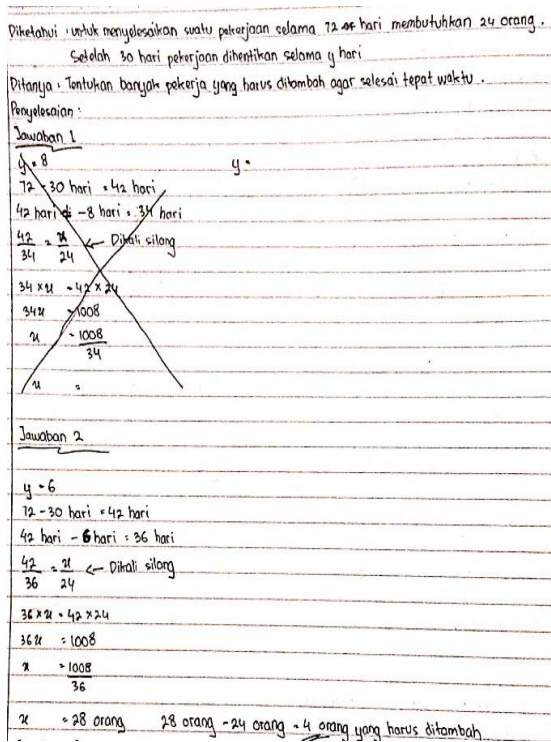 Diketahui : untuk menyelesaikan suatu pekerjaan selama 72 hari membutuhkan 24 orang.
Setelah 30 hari pekerjaan dihentikan selama y hari
Ditanya : Tentukan banyak pekerja yang harus ditambah agar selesai tepat waktu.
Penyelesaian :
Jawaban 1
y = 8
y =
72 - 30 hari = 42 hari
42 hari - 8 hari = 34 hari
42/34 = x/24 ← Dikali silang
34 × x = 42 × 24
34x = 1008
x = 1008/34
x =
Jawaban 2
y = 6
72 - 30 hari = 42 hari
42 hari - 6 hari = 36 hari
42/36 = x/24 ← Dikali silang
36 × x = 42 × 24
36x = 1008
x = 1008/36
x = 28 orang 28 orang - 24 orang = 4 orang yang harus ditambah